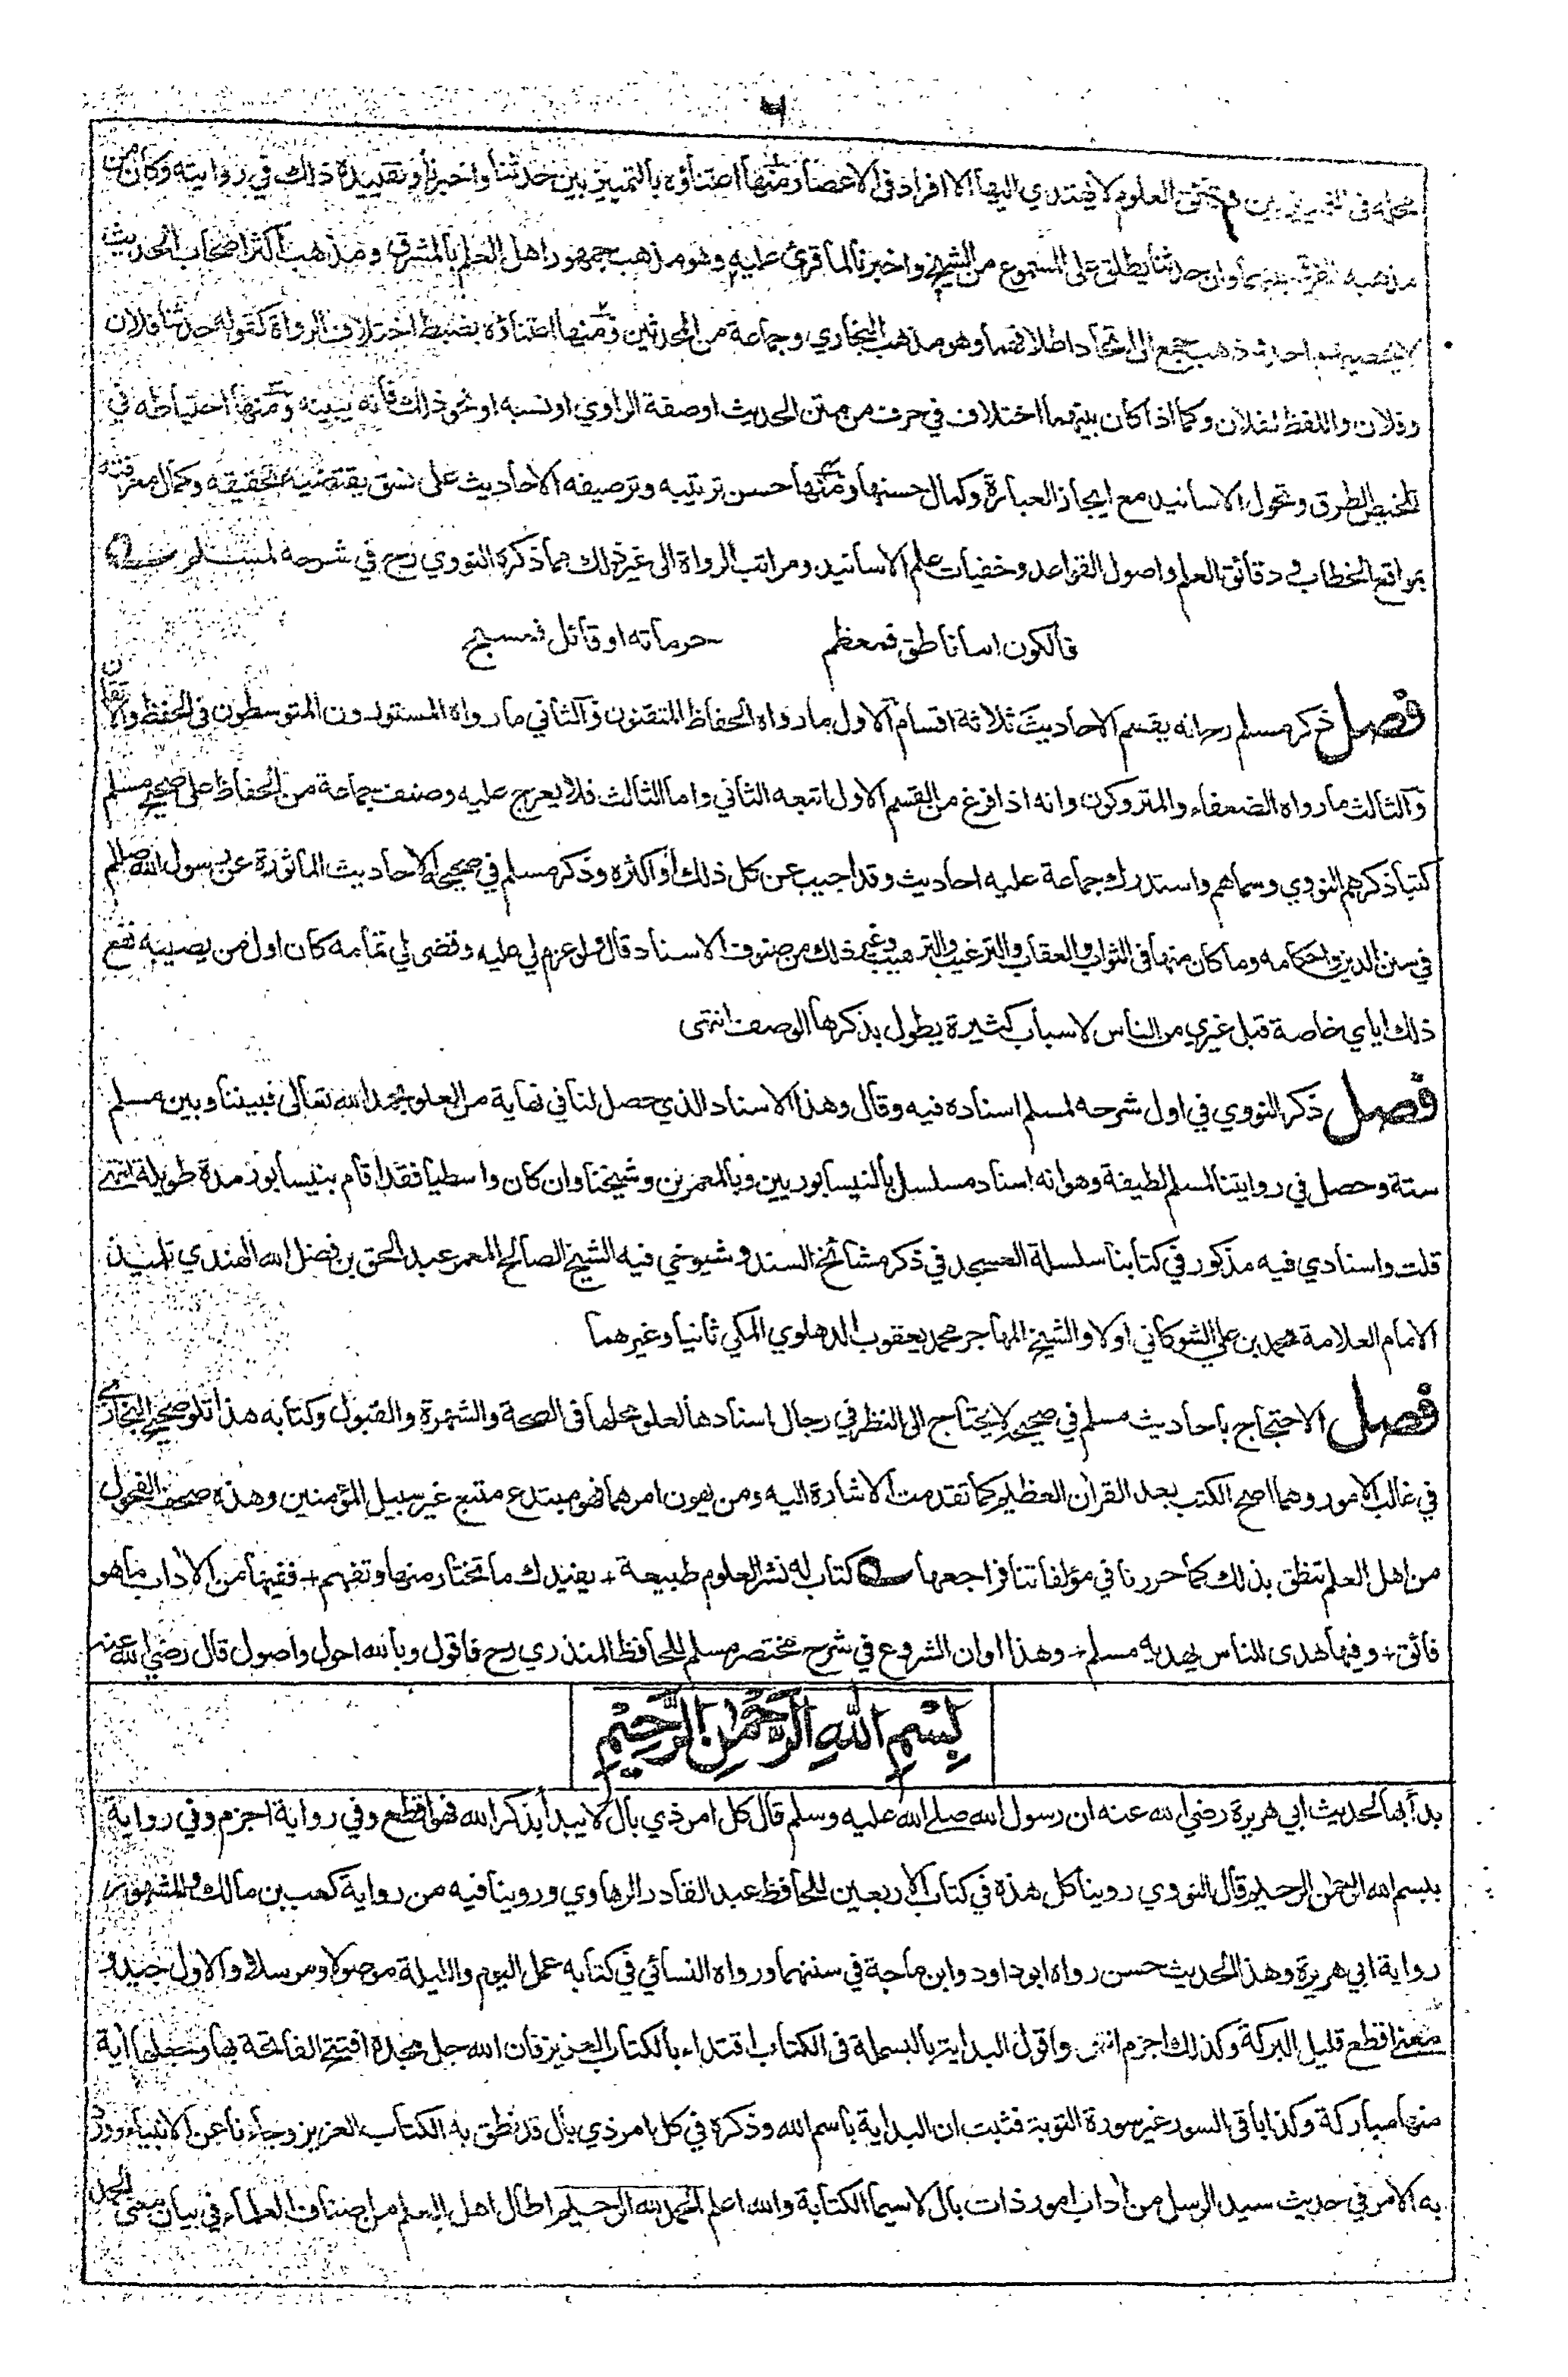 ٦
محله في التمييز بين دقائق العلوم لا يهتدي اليها الا افراد في الاعصار ومنها اعتناؤه بالتمييز بين حدثنا واخبرنا وتقييده ذلك في روايته وكان من
مذهبه الفرق بينهما وان حدثنا يطلق على المسموع من الشيخ واخبرنا لما قرئ عليه وهو مذهب جمهور اهل العلم بالمشرق ومذهب اكثر اصحاب الحديث
ذهب جمع الى اتحاد اطلاقهما وهو مذهب البخاري وجماعة من المحدثين ومنها اعتناؤه بضبط اختلاف الرواة كقوله حدثنا فلان
وفلان واللفظ لفلان وكما اذا كان بينهما اختلاف في حرف من متن الحديث او صفة الراوي او نسبه او نحو ذلك فانه يبينه ومنها احتياطه في
تلخيص الطرق وتحول الاسانيد مع ايجاز العبارة وكمال حسنها ومنها حسن ترتيبه وترصيفه الاحاديث على نسق يقتضيه تحقيقه وكمال معرفته
بمواقع الخطاب ودقائق العلم واصول القواعد وخفيات علم الاسانيد ومراتب الرواة الى غير ذلك مما ذكره النووي رح في شرحه لمسلم
فالكون اما ناطق فمعظم حرماته او قائل فمسبح
فصل ذكر مسلم رح انه يقسم الاحاديث ثلاثة اقسام الاول ما رواه الحفاظ المتقنون والثاني ما رواه المستورون المتوسطون في الحفظ والاتقان
والثالث ما رواه الضعفاء والمتروكون وانه اذا فرغ من القسم الاول اتبعه الثاني واما الثالث فلا يعرج عليه وصنف جماعة من الحفاظ على صحيح مسلم
كتبا ذكرهم النووي وسماهم واستدرك جماعة عليه احاديث وقد اجيب عن كل ذلك او اكثره وذكر مسلم في صحيحه الاحاديث الماثورة عن رسول الله صللم
في سنن الدين واحكامه وما كان منها في الثواب والعقاب والترغيب والترهيب وغير ذلك من صنوف الاسناد قال ولو عزم لي عليه وقضى لي تمامه كان اول من يصيبه نفع
ذلك اياي خاصة قبل غيري من الناس لاسباب كثيرة يطول بذكرها الوصف انتهى
فصل ذكر النووي في اول شرحه لمسلم اسناده فيه وقال وهذا الاسناد الذي حصل لنا في نهاية من العلو بحمد الله تعالى فبيننا وبين مسلم
ستة وحصل في روايتنا لمسلم لطيفة وهو انه اسناد مسلسل بالنيسابوريين وبالمعمرين وشيخنا وان كان واسطيا فقد اقام بنيسابور مدة طويلة انتهى
قلت واسنادي فيه مذكور في كتابنا سلسلة العسجد في ذكر مشائخ السند وشيوخي فيه الشيخ الصالح المعمر عبد الحق بن فضل الله الهندي تلميذ
الامام العلامة محمد بن علي الشوكاني اولا والشيخ المهاجر محمد يعقوب الدهلوي المكي ثانيا وغيرهما
فصل الاحتجاج باحاديث مسلم في صحيحه لا يحتاج الى النظر في رجال اسنادها لعلو محلها في الصحة والشهرة والقبول وكتابه هذا تلو صحيح البخاري
في غالب الامور وهما اصح الكتب بعد القران العظيم كما تقدمت الاشارة اليه ومن يهون امرهما فهو مبتدع متبع غير سبيل المؤمنين وهذه صحف الفحول
من اهل العلم تنطق بذلك كما حررنا في مؤلفاتنا فراجعها كتاب له نشر العلوم طبيعة + يفيدك ما تختار منها وتفهم + ففيها من الاداب ما هو
فائق + وفيها هدى للناس يهديه مسلم + وهذا اوان الشروع في شرح مختصر مسلم للحافظ المنذري رح فاقول وبالله احول واصول قال رضي الله عنه
بِسْمِ اللهِ الرَّحْمٰنِ الرَّحِيْمِ
بدأ بها لحديث ابي هريرة رضي الله عنه ان رسول الله صلى الله عليه وسلم قال كل امر ذي بال لا يبدأ بذكر الله فهو اقطع وفي رواية اجزم وفي رواية
ببسم الله الرحمن الرحيم قال النووي روينا كل هذه في كتاب الاربعين للحافظ عبد القادر الرهاوي وروينا فيه من رواية كعب بن مالك والمشهور
رواية ابي هريرة وهذا الحديث حسن رواه ابو داود وابن ماجة في سننهما ورواه النسائي في كتابه عمل اليوم والليلة موصولا ومرسلا والاول جيد و
معنى اقطع قليل البركة وكذلك اجزم انتهى واقول البداية بالبسملة في الكتاب اقتداء بالكتاب العزيز فان الله جل مجده افتتح الفاتحة بها وجعلها اية
منها مباركة وكذا باقي السور غير سورة التوبة فثبت ان البداية باسم الله وذكره في كل امر ذي بال قد نطق به الكتاب العزيز وجاءنا عن الانبياء وورد
به الامر في حديث سيد الرسل من اداب امور ذات بال لا سيما الكتابة والله اعلم الحمد لله الرحيم اطال اهل العلم من اصناف العلماء في بيان معنى الحمد